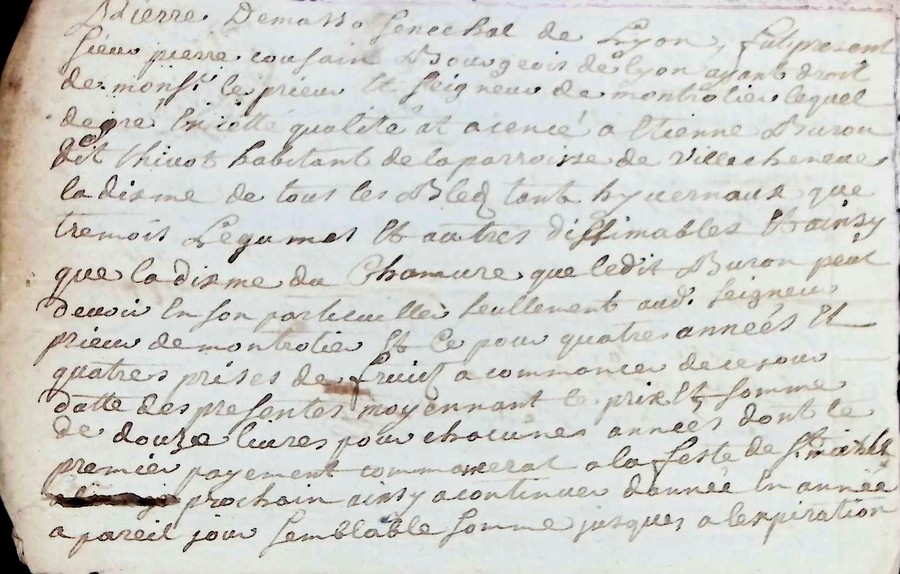 pierre Demasso Senechal de Lyon, fut present
sieur pierre cousain Bourgeois de lyon ayant droit
de monsr. le prieur Et Seigneur de montrotier lequel
de gré En cette qualité at acencé a Etienne Buron
dit thivot habitant de la parroisse de Villecheneve
la disme de tous les Bledz tant hyvernaux que
tremois Legumes Et autres diximables Et ainsy
que la disme du Chanvre que ledit Buron peut
devoir En son particuellier seullement aud. Seigneur
prieur de montrotier Et Ce pour quatres années Et
quatres prises de fruictz a commancer de ce jour
datte des presentes moyennant le prix Et somme
de douze livres pour chacunes années dont le
premier payement commancerat a la feste de St.
prochain ainsy a continuer dannée En année
a pareil jour semblable somme jusques a lexpiration